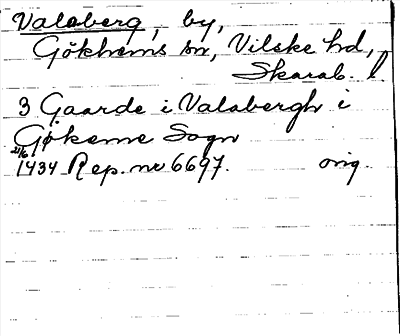 Valaberg, by,
Gökhems sn, Vilske hd,
Skarab. l.
3 Gaarde i Valabergh i
Gøkeme Sogn
21/6
1434 Rep. nr 6697. orig.